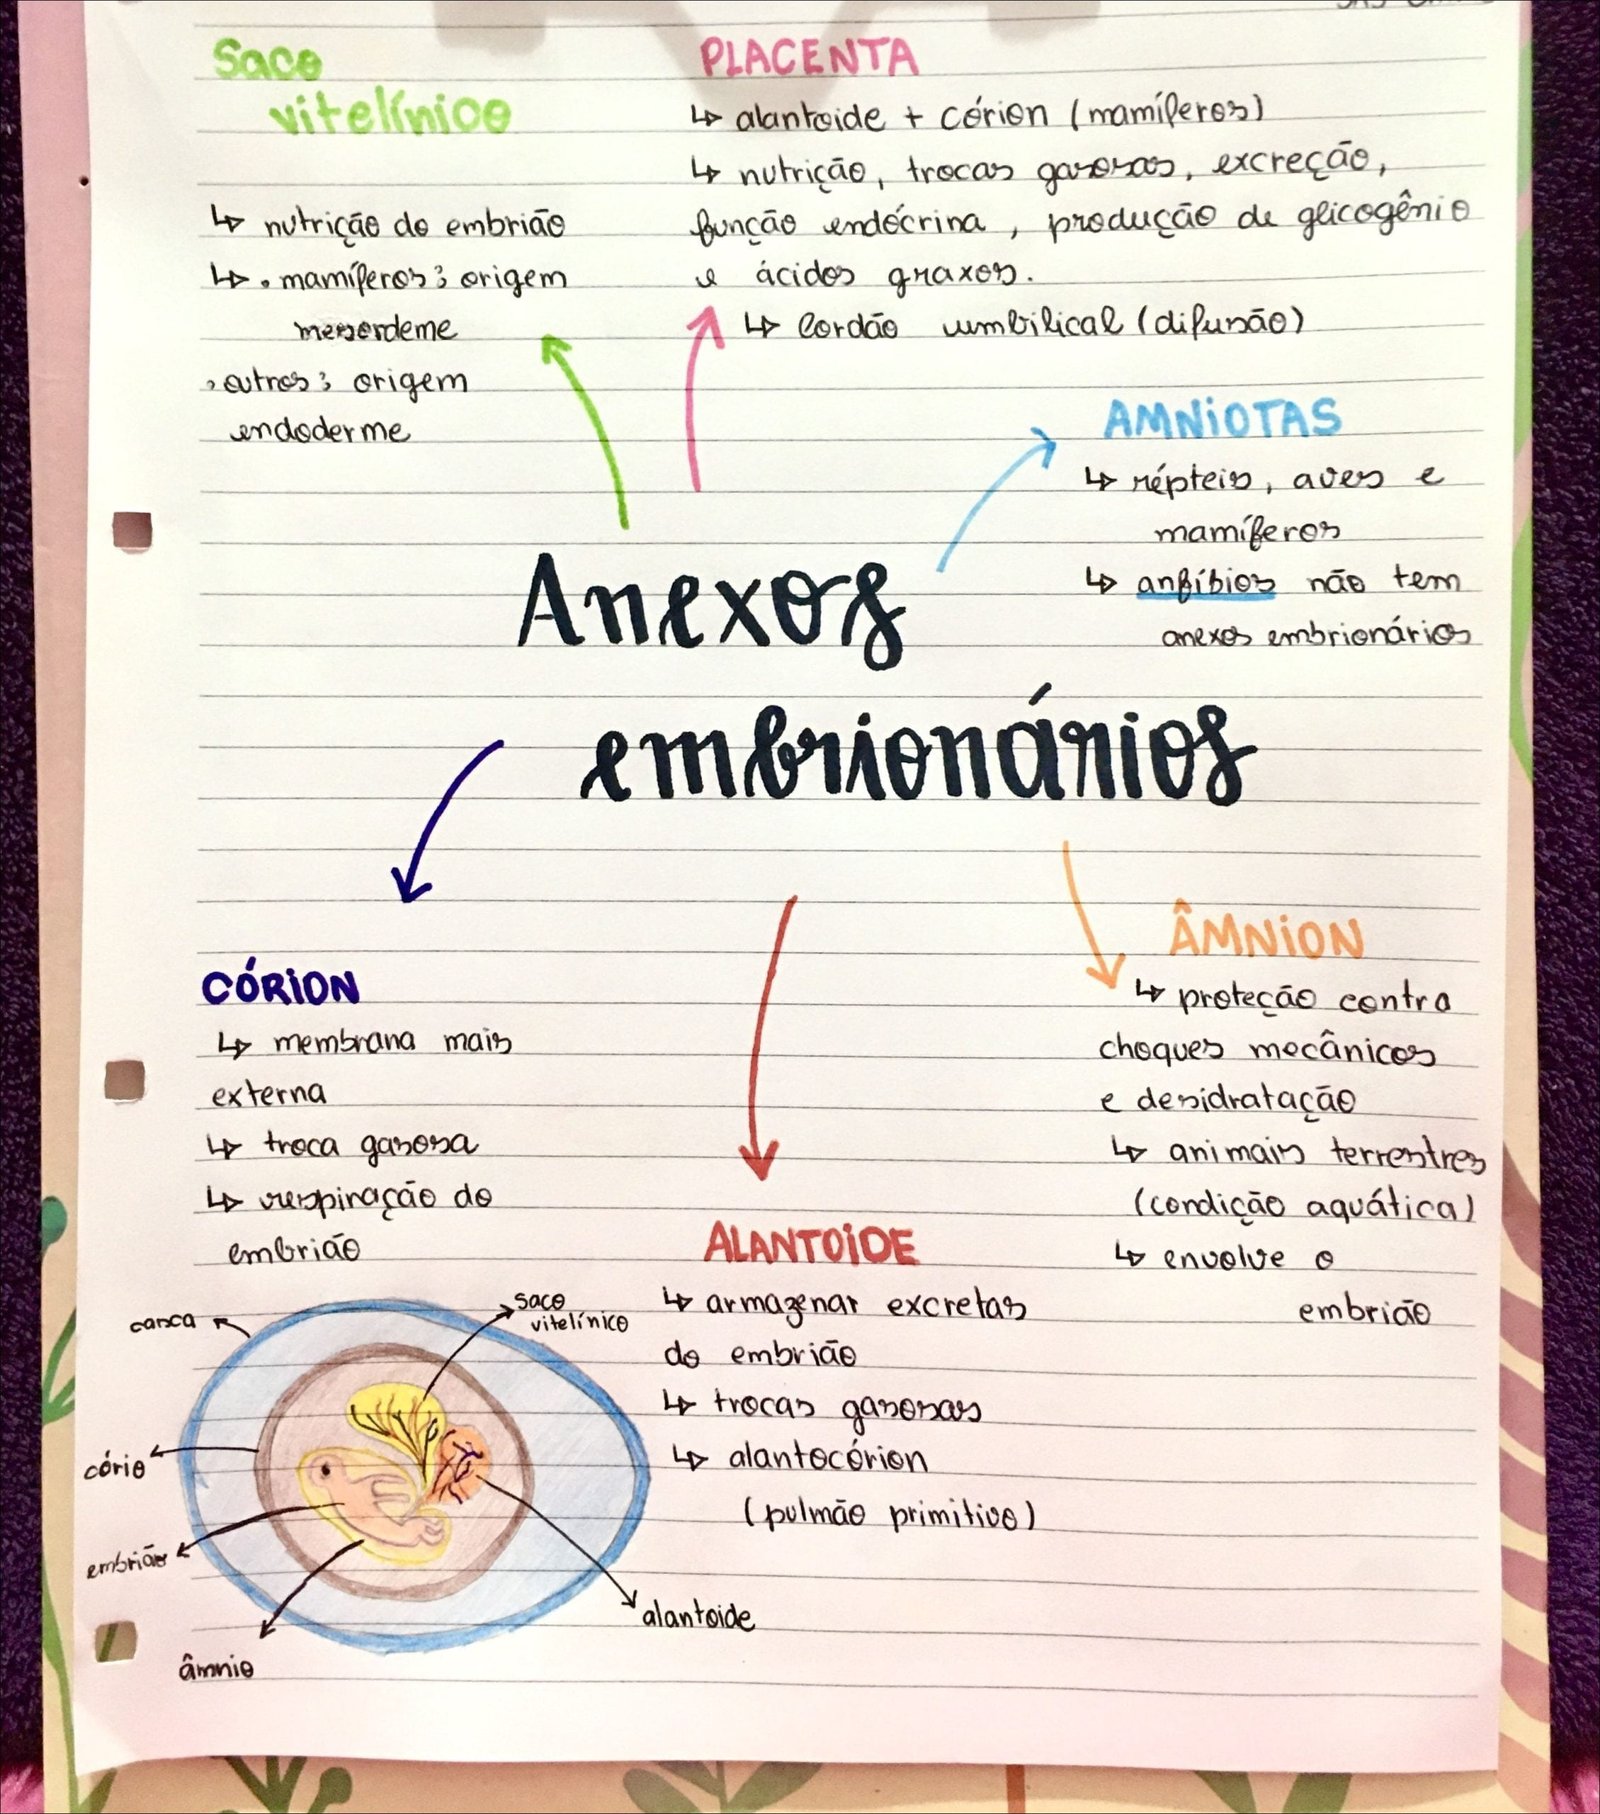 Saco
vitelínico
↳ nutrição do embrião
↳ • mamíferos: origem
mesorderme
• outros: origem
endoderme
PLACENTA
↳ alantoide + córion (mamíferos)
↳ nutrição, trocas gasosas, excreção,
função endócrina, produção de glicogênio
e ácidos graxos.
↳ Cordão umbilical (difusão)
AMNIOTAS
↳ répteis, aves e
mamíferos
↳ anfíbios não tem
anexos embrionários
Anexos
embrionários
CÓRION
↳ membrana mais
externa
↳ troca gasosa
↳ respiração do
embrião
ÂMNION
↳ proteção contra
choques mecânicos
e desidratação
↳ animais terrestres
(condição aquática)
↳ envolve o
embrião
ALANTOIDE
↳ armazenar excretas
do embrião
↳ trocas gasosas
↳ alantocórion
(pulmão primitivo)
casca
saco
vitelínico
cório
embrião
âmnio
alantoide